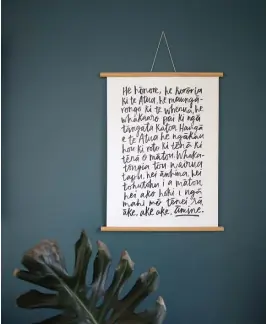 He hōnore, he korōria
ki te Atua, he maungā-
rongo ki te whenua, he
whakaaro pai ki ngā
tāngata katoa. Hangā
e te Atua he ngākau
hou ki roto ki tēnā ki
tēnā o mātou. Whaka-
tōngia tōu wairua
tapu, hei āwhina, hei
tohutohu i a mātou
hei ako hoki i ngā
mahi mō tēnei rā
āke, ake ake, āmine.